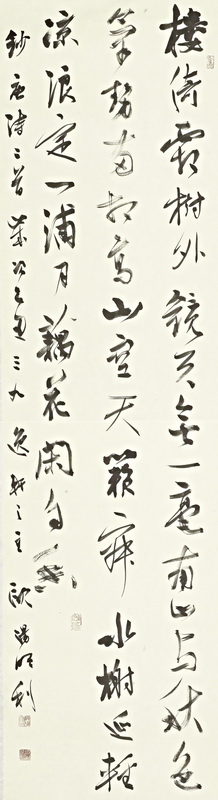 樓倚霜樹外鏡天無一毫南山与秋色
氣勢兩相高山空天籟寂水榭延輕
涼浪定一浦月藕花閑自香
鈔唐詩二首歲次丑三九逸軒之主歐陽利